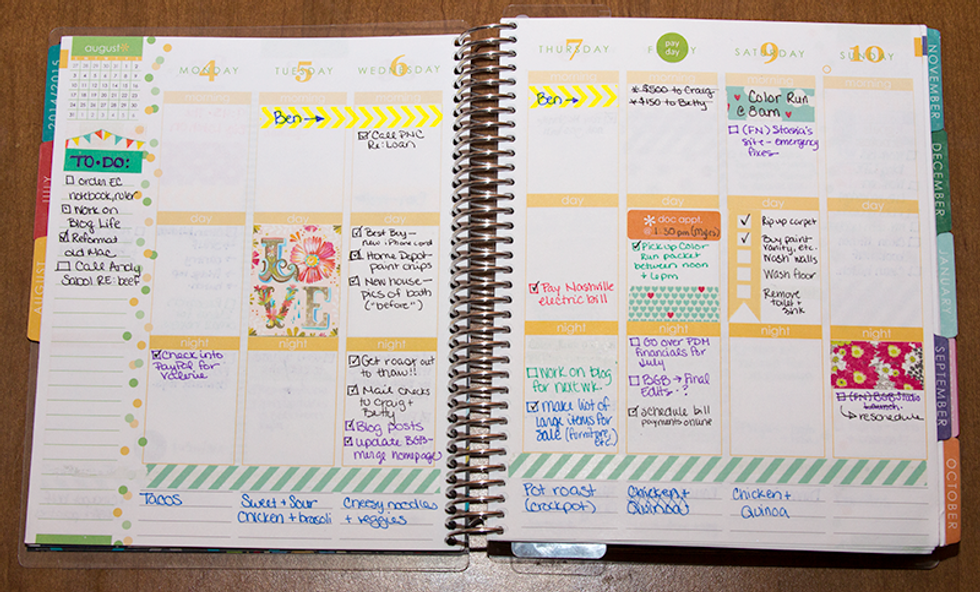 august
TO-DO:
order EC
notebook, ruler
Work on
Blog Life
Reformat
old Mac
Call Andy
Sabol RE: beef
2014/2015
JULY
AUGUST
MONDAY
4
day
night
Check into
PayPal for
Valerie
Tacos
TUESDAY
5
morning
Ben →
day
LOVE
night
Sweet + Sour
Chicken + brocoli
WEDNESDAY
6
morning
Call PNC
Re: Loan
day
Best Buy -
new iPhone cord
Home Depot -
paint chips
New house -
pics of bath
("before")
night
Get roast out
to thaw!!
Mail checks
to Craig +
Betty
Blog posts
update BGB -
merge homepage
Cheesy noodles
+ veggies
THURSDAY
7
morning
Ben →
day
Pay Nashville
electric bill
night
Work on blog
for next wk.
Make list of
large items for
Sale (furniture,
etc.)
Pot roast
(crockpot)
pay
day
* $500 to Craig
* $150 to Betty
doc appt.
@ 1:30 pm (Myers)
Pick up Color
Run packet
between noon
+ 6pm
night
Go over PDM
financials for
July
BGB → Final
Edits - ?
Schedule bill
payments online
Chicken +
Quinoa
SATURDAY
9
Color Run
@ 8am
(FN) Stasia's
Site - emergency
fixes
day
Rip up carpet
Buy paint
vanity, etc.
Wash walls
Wash floor
Remove
toilet +
sink
night
Chicken +
Quinoa
SUNDAY
10
morning
day
night
(FN) BGB Studio
Launch.
↳ reschedule
NOVEMBER
DECEMBER
JANUARY
SEPTEMBER
OCTOBER